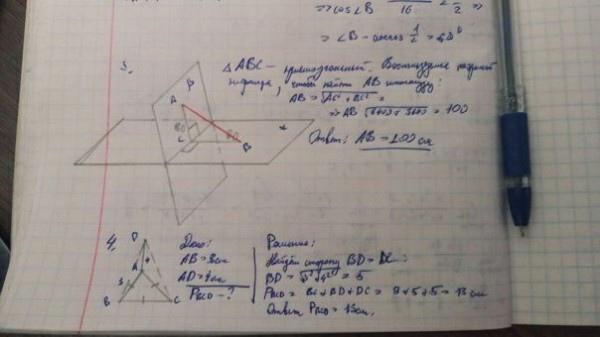 => cos∠B 16 2
=> ∠B - arccos 1/2 = 60°
3.
△ABC - прямоугольный. Воспользуемся теоремой
Пифагора, чтобы найти AB гипотенузу:
AB = √AC² + BC² =
=> AB √6400 + 3600 = 100
Ответ: AB = 100 см
β
A
80
C
60
B
α
4.
D
A
4
3
B
C
Дано:
AB = 3см
AD = 4см
P_BCD - ?
Решение:
Найдём сторону BD = DC:
BD = √3²+4² = 5
P_BCD = BC + BD + DC = 3 + 5 + 5 = 13 см
Ответ P_BCD = 13см.